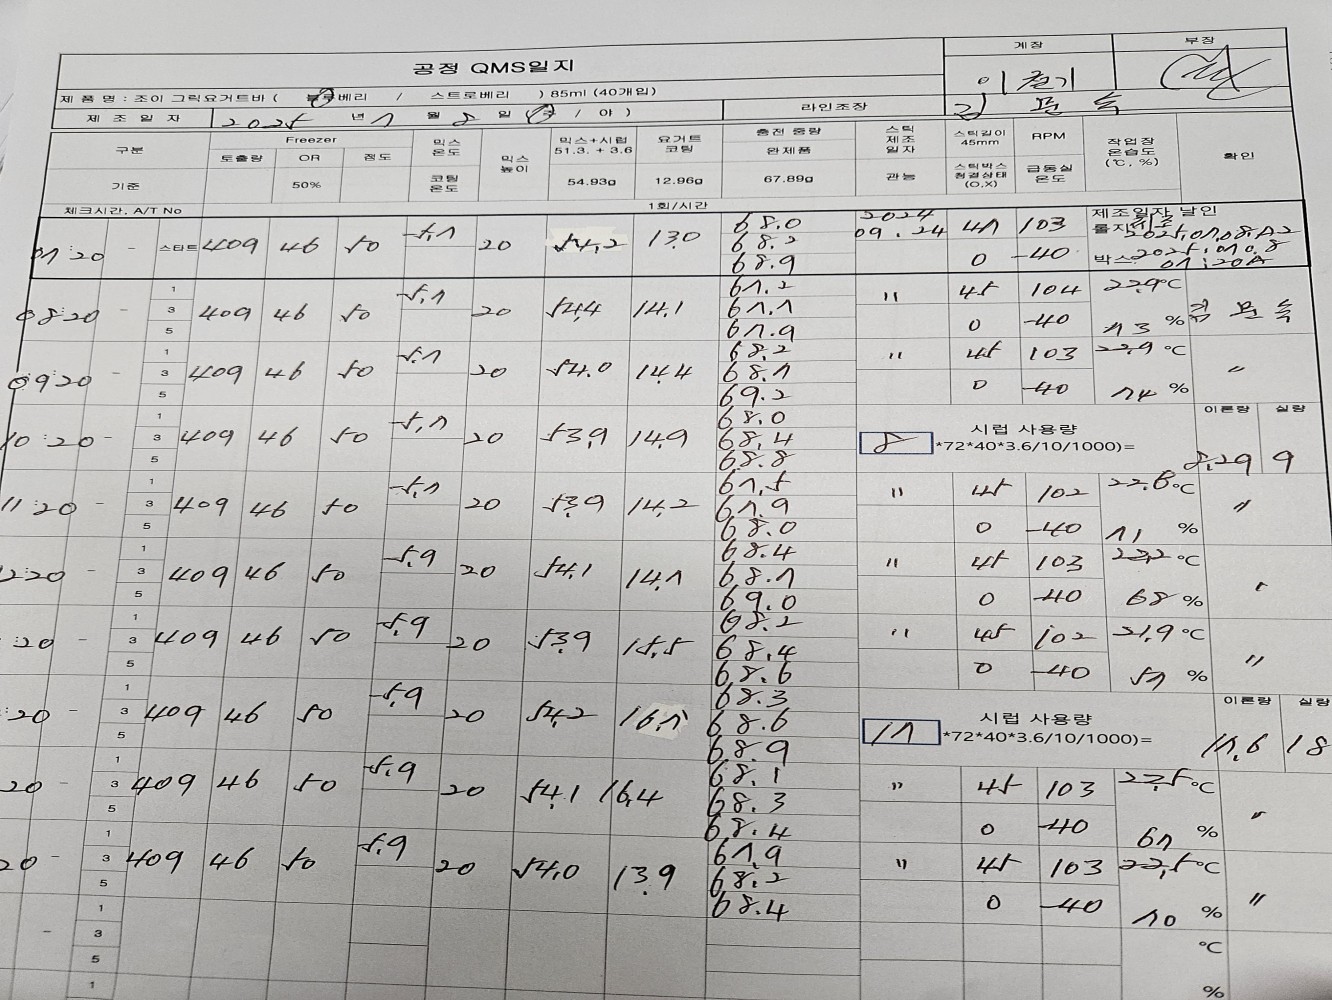 계장 부장
공정 QMS일지
이철기
제 품 명 : 조이 그릭요거트바 ( 블루베리 / 스트로베리 ) 85ml (40개입)
제 조 일 자 2025 년 7 월 8 일 ( 주 / 야 ) 라인조장 김
구분 Freezer 믹스온도 믹스높이 믹스+시럽 51.3. + 3.6 요거트코팅 충전 중량 스틱제조일자 스틱길이 45mm RPM 작업장온습도 (℃, %) 확인
토출량 OR 점도 완제품
기준 50% 코팅온도 54.93g 12.96g 67.89g 관능 스틱박스청결상태 (O,X) 급동실온도
체크시간, A/T No 1회/시간
07:20 - 스타트 409 46 50 -5.7 20 54.2 13.0 68.0 2024 47 103 제조일자 날인
68.2 09.24 롤지
68.9 0 -40 박스 2025.07.08
07:20A
08:20 - 1 409 46 50 -5.7 20 54.4 14.1 67.2 " 45 104 22.9℃
3 67.7
5 67.9 0 -40 73 %
09:20 - 1 409 46 50 -5.7 20 54.0 14.4 68.2 " 45 103 22.9 ℃ "
3 68.7
5 69.2 0 -40 74 %
10:20 - 1 409 46 50 -5.7 20 53.9 14.9 68.0 시럽 사용량 이론량 실량
3 68.4 8 *72*40*3.6/10/1000)= 8.29 9
5 68.8
11:20 - 1 409 46 50 -5.7 20 53.9 14.2 67.5 " 45 102 22.6℃ "
3 67.9
5 68.0 0 -40 71 %
2:20 - 1 409 46 50 -5.9 20 54.1 14.7 68.4 " 45 103 22.2 ℃
3 68.7
5 69.0 0 -40 68 %
:20 - 1 409 46 50 -5.9 20 53.9 15.5 68.2 " 45 102 21.9 ℃ "
3 68.4
5 68.6 0 -40 57 %
:20 - 1 409 46 50 -5.9 20 54.2 16.7 68.3 시럽 사용량 이론량 실량
3 68.6 17 *72*40*3.6/10/1000)= 17.6 18
5 68.9
20 - 1 409 46 50 -5.9 20 54.1 16.4 68.1 " 45 103 22.5℃ "
3 68.3
5 68.4 0 -40 67 %
20 - 1 409 46 50 -5.9 20 54.0 13.9 67.9 " 45 103 22.5℃ "
3 68.2
5 68.4 0 -40 70 %
- 1
3 ℃
5
1 %